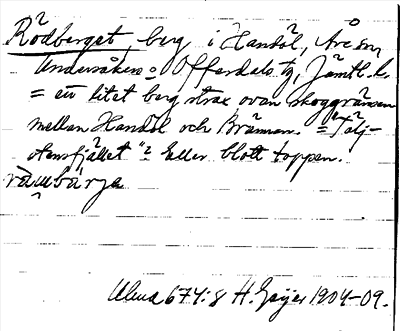 Rödberget, berg i Handöl, Åre sn,
Undersåkers o Offerdals tg, Jämtl. l.
= ett litet berg strax ovan skoggränsen
mellan Handöl och Brännan. = "Tälj-
stensfjället"? Eller blott toppen.
råmbärja
Ulma 674:8 H. Geijer 1904-09.